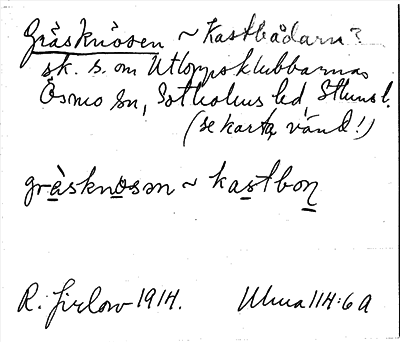 Gråsknösen ~ Kastbådarn?
sk. s. om Utloppsklubbarnas
Ösmo sn, Sotholms hd, Sthms l.
(se karta, vänd!)
gråsknosən ~ kastbon
R. Jirlow 1914. Ulma 114:6 A